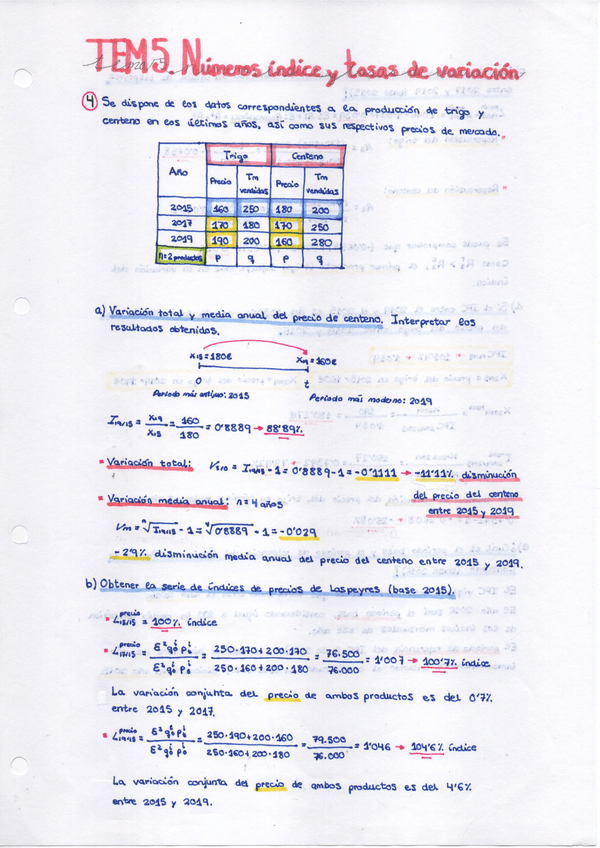 TEM5. Números índice y tasas de variación
4) Se dispone de los datos correspondientes a la producción de trigo y
centeno en los últimos años, así como sus respectivos precios de mercado.
Año Trigo Centeno
Precio Tm vendidas Precio Tm vendidas
2015 160 250 180 200
2017 170 180 170 250
2019 190 200 160 280
n=2 productos p q p q
a) Variación total y media anual del precio de centeno. Interpretar los
resultados obtenidos.
x₁₅=180€ x₁₉=160€
0 t
Período más antiguo: 2015 Período más moderno: 2019
I₁₉/₁₅ = x₁₉/x₁₅ = 160/180 = 0'8889 → 88'89%
Variación total: I₁₉/₁₅ - 1 = 0'8889 - 1 = -0'1111 → -11'11% disminución
del precio del centeno
entre 2015 y 2019
Variación media anual: n = 4 años
Vm = ⁿ√I₁₉/₁₅ - 1 = ⁴√0'8889 - 1 = -0'029
-2'9% disminución media anual del precio del centeno entre 2015 y 2019.
b) Obtener la serie de índices de precios de Laspeyres (base 2015).
L precio 15/15 = 100% índice
L precio 17/15 = Σ² q₀ⁱ pₜⁱ / Σ² q₀ⁱ p₀ⁱ = 250·170+200·170 / 250·160+200·180 = 76.500 / 76.000 = 1'007 → 100'7% índice
La variación conjunta del precio de ambos productos es del 0'7%
entre 2015 y 2017.
L precio 19/15 = Σ² q₀ⁱ pₜⁱ / Σ² q₀ⁱ p₀ⁱ = 250·190+200·160 / 250·160+200·180 = 79.500 / 76.000 = 1'046 → 104'6% índice
La variación conjunta del precio de ambos productos es del 4'6%
entre 2015 y 2019.